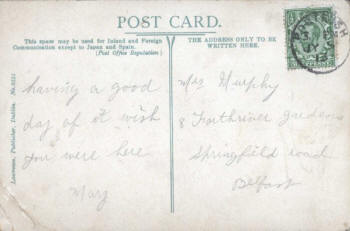 POST CARD.
This space may be used for Inland and Foreign
Communication except to Japan and Spain.
(Post Office Regulation)
THE ADDRESS ONLY TO BE
WRITTEN HERE.
Lawrence, Publisher, Dublin.
having a good
day of it wish
you were here
Mary
Mrs Murphy
8 Forthriver gardens
Springfield road
Belfast